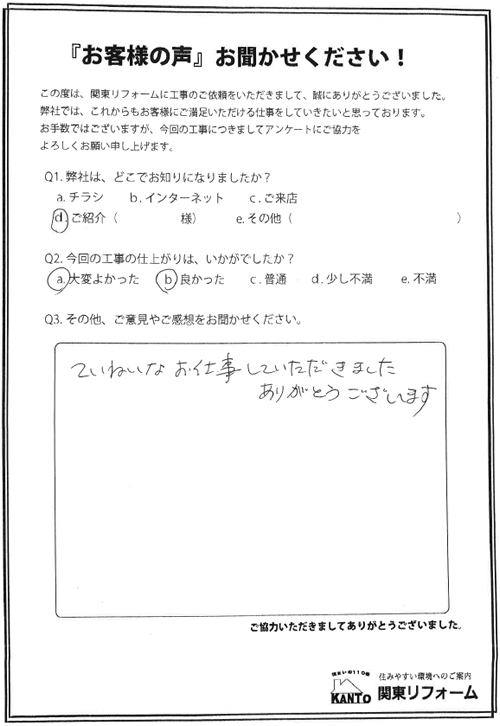 『お客様の声』お聞かせください！
この度は、関東リフォームに工事のご依頼をいただきまして、誠にありがとうございました。
弊社では、これからもお客様にご満足いただける仕事をしていきたいと思っております。
お手数ではございますが、今回の工事につきましてアンケートにご協力を
よろしくお願い申し上げます。
Q1. 弊社は、どこでお知りになりましたか？
a. チラシ　b. インターネット　c. ご来店
d. ご紹介（　　　　様）　e. その他（　　　　　　　　）
Q2. 今回の工事の仕上がりは、いかがでしたか？
a. 大変よかった　b. 良かった　c. 普通　d. 少し不満　e. 不満
Q3. その他、ご意見やご感想をお聞かせください。
ていねいなお仕事していただきました
ありがとうございます
ご協力いただきましてありがとうございました。
住まいの110番
住みやすい環境へのご案内
KANTO 関東リフォーム